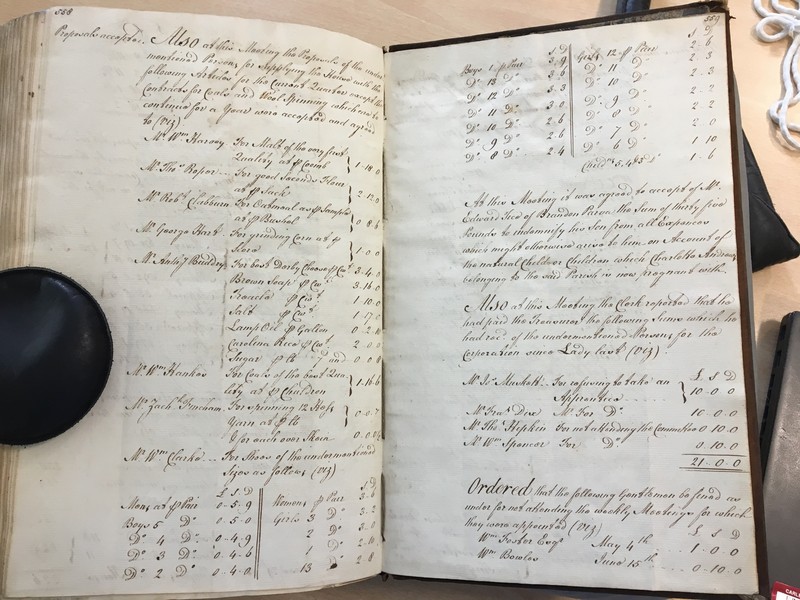 558
Proposals accepted. Also at this Meeting the Proposals of the under
mentioned Persons for supplying the House with the
following Articles for the Current Quarter except the
Contracts for Coals and Wool Spinning which are to
continue for a Year were accepted and agreed
to (Viz)
Mr. Wm Harvey For Malt of the very first
Quality at p Coomb 1..18..0
Mr. Thos. Roper For good Seconds Flour
at p Sack 2..12..0
Mr. Robt. Clabburn For Oatmeal as p Sample
at p Bushel 0..8..6
Mr. George Hart For grinding Corn at p
Score 1..0..0
Mr. Anty For best Darby Cheese p Cwt. 3..4..0
Brown Soap p Cwt. 3..16..0
Treacle p Cwt. 1..10..0
Salt p Cwt. 1..17..0
Lamp Oil p Gallon 0..2
Carolina Rice p Cwt. 2..0..0
Sugar p lb 7d and 0..0
Mr. Wm Hankes For Coals of the best Qua-
lity at p Chaldron 1..16..6
Mr. Zach. Fincham For Spinning 12 Hofs
Yarn at p lb 0..0..7
for each over Skein 0..0
Mr. Wm Clarke For Shoes of the undermentioned
Sizes as follows (Viz)
£ S D S D
Mens at p Pair 0..5..9 Womens p Pair 3..6
Boys 5 Do 0..5..0 Girls 3 Do 3..2
Do 4 Do 0..4..9 2 Do 3..0
Do 3 Do 0..4..6 1 Do 2..10
Do 2 Do 0..4..0 13 Do 2..8
559
S D S D
Boys 1 p Pair 3..9 Girls 12 p Pair 2..6
Do 13 Do 3..6 Do 11 Do 2..3
Do 12 Do 3..3 Do 10 Do 2..3
Do 11 Do 3..0 Do 9 Do 2..2
Do 10 Do 2..6 Do 8 Do 2..2
Do 9 Do 2..6 Do 7 Do 2..0
Do 8 Do 2..4 Do 6 Do 1..10
Childs 5, 4 & 3 Do 1..6
At this Meeting it was agreed to accept of Mr.
Edward of Brandon Parva the Sum of thirty five
Pounds to indemnify his Son from all Expences
which might otherwise arise to him on Account of
the natural Child or Children which Charlotte Andrews
belonging to the said Parish is now pregnant with.
Also at this Meeting the Clerk reported that he
had paid the Treasurer the following Sums which he
had recd. of the undermentioned Persons for the
Corporation since Lady last (Viz)
£ S D
Mr. Jos. Muskett For refusing to take an
Apprentice 10..0..0
Mr. Fras. Dixe Mr. For Do. 10..0..0
Mr. Thos. Hepkin For not attending the Committee 0..10..0
Mr. Wm Spencer For Do. 0..10..0
21..0..0
Ordered that the following Gentlemen be fined as
under for not attending the weekly Meetings for which
they were appointed (Viz) £ S D
Wm. Foster Esqr. May 4th 1..0..0
Wm. Bowles June 15th 0..10..0